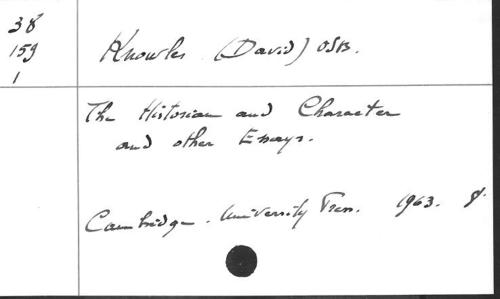 38
159
1
Knowles (David) OSB.
The Historian and Character
and other Essays.
Cambridge. University Press. 1963. 8.